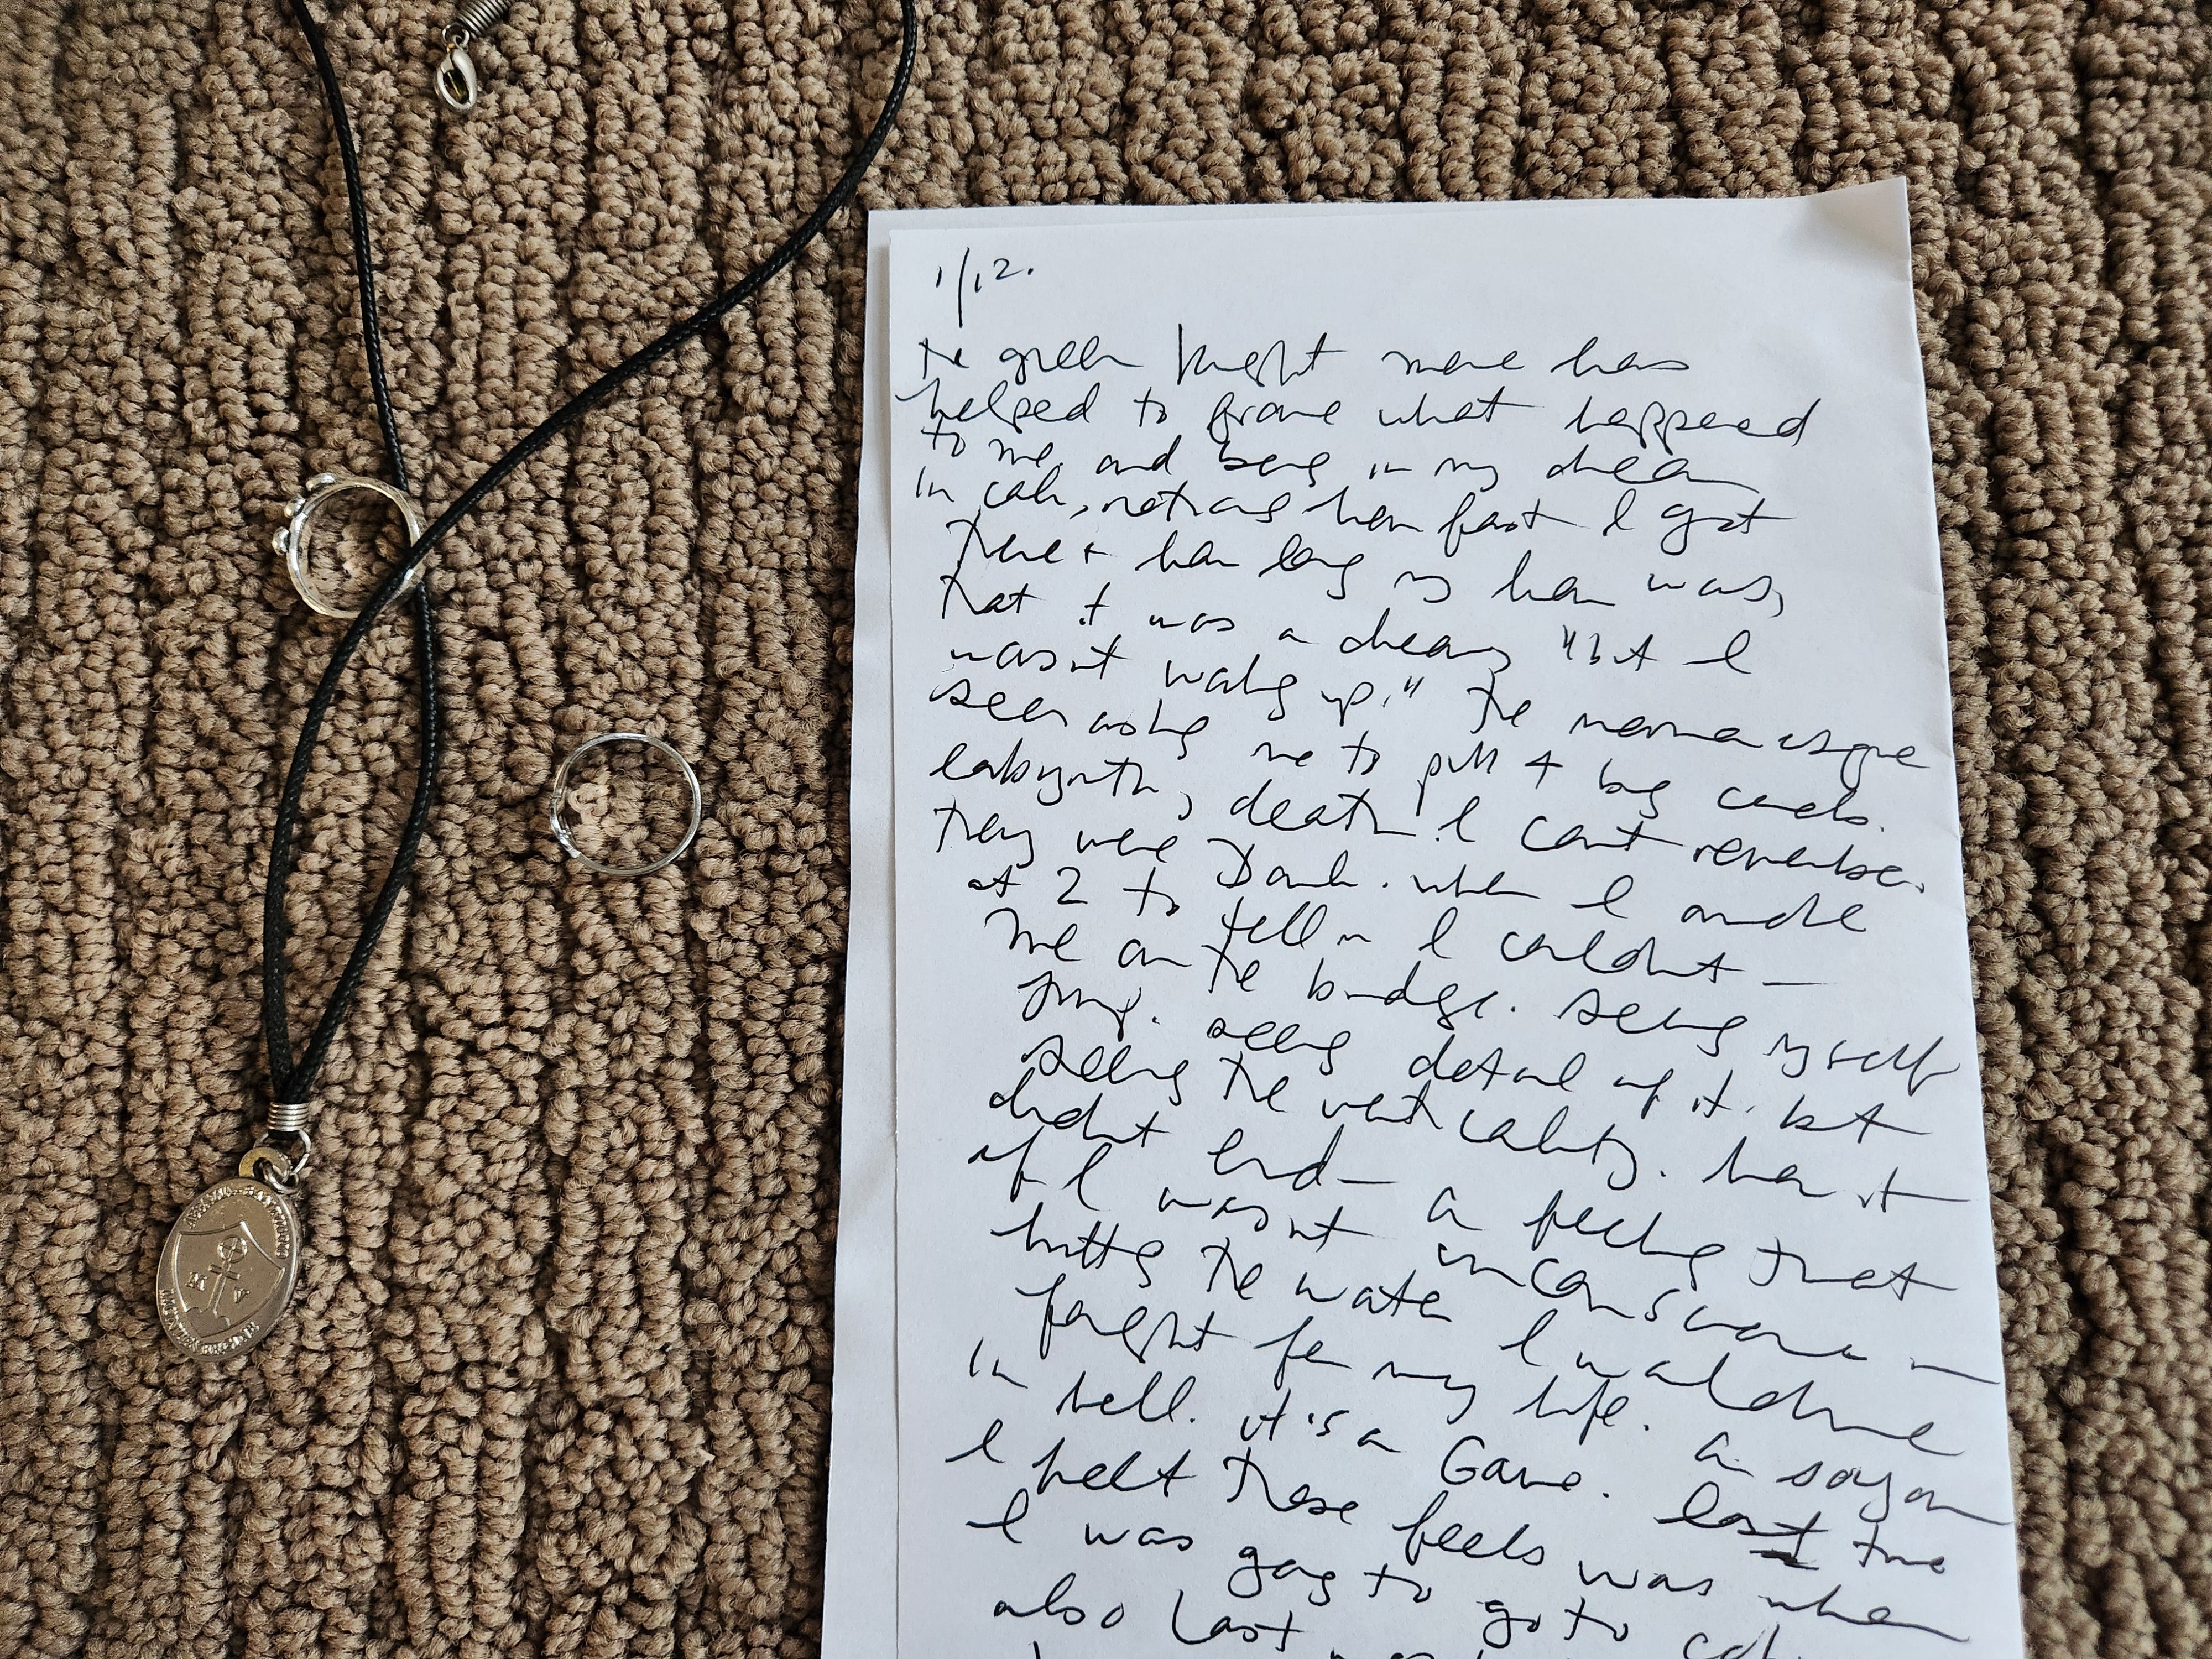 1/12.
the green knight movie has
helped to frame what happened
to me, and being in my dream
in cali, noticing how fast I got
there + how long my hair was,
that it was a dream, "but I
wasn't waking up." The
seer asking me to pull 4 big cards.
labyrinth, death I can't remember.
they were Dark. when I
at 2 to tell I couldn't —
me on the bridge. seeing myself
jump. seeing detail of it. but
seeing the verticality. how it
didn't end — a feeling that
if I wasn't unconscious in
hitting the water I would have
fought for my life.
in hell. it's a Game. last time
I felt these feels was when
I was going to go to
also last